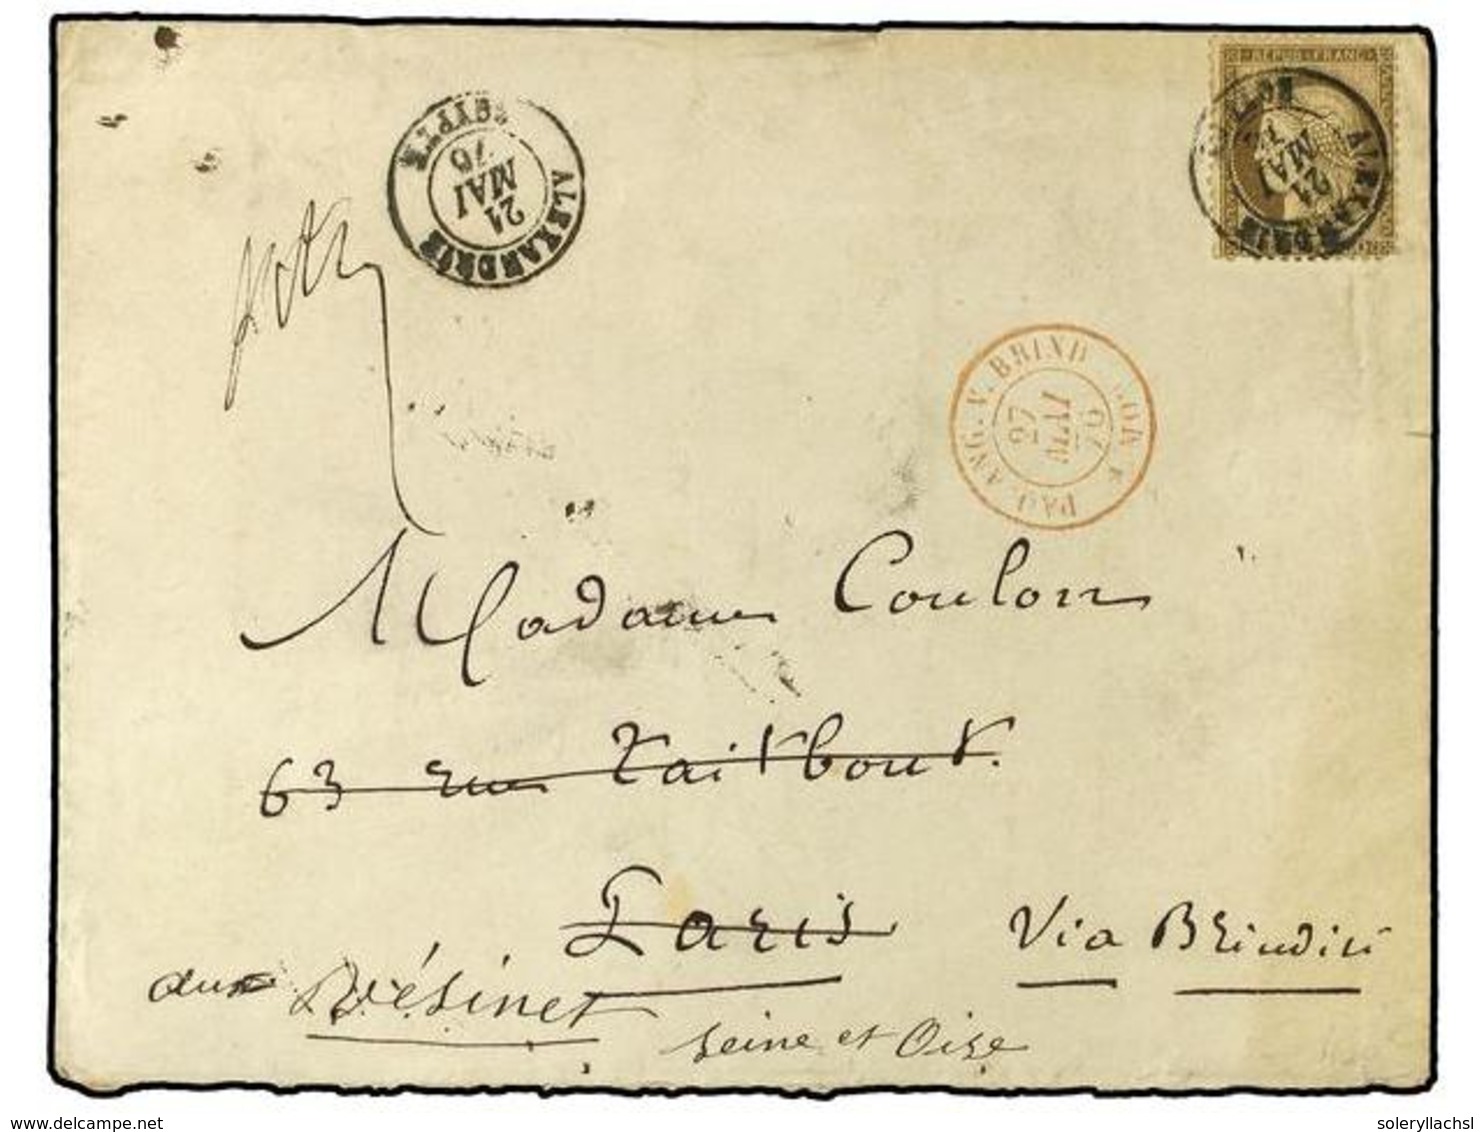 REPUB. FRANC.
ALEXANDRIE
EGYPTE
21
MAI
ALEXANDRIE
EGYPTE
21
MAI
76
PAQ. ANG. V. BRIND
27
MAI
76
Madame Coulon
63 rue Taitbout.
Paris
Via Brindisi
au Vésinet
Seine et Oise
delcampe.net
soleryllachsl